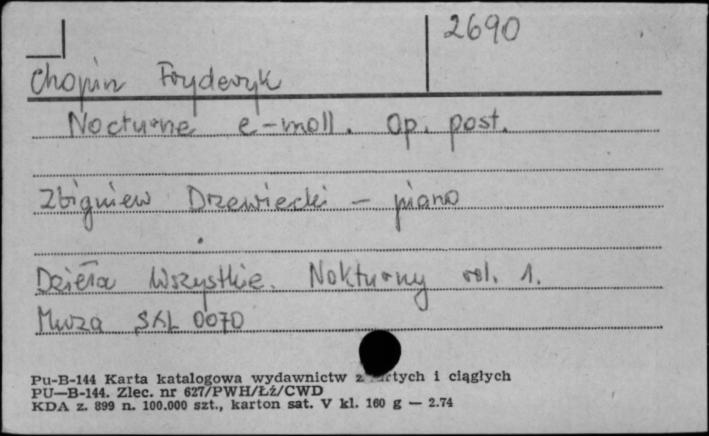 2690
Chopin Fryderyk
Nocturne e-moll. Op. post.
Zbigniew Drzewiecki - piano
Dzieła Wszystkie. Nokturny vol. 1.
Muza SXL 0070
Pu-B-144 Karta katalogowa wydawnictw z rtych i ciągłych
PU—B-144. Zlec. nr 627/PWH/Łź/CWD
KDA z. 899 n. 100.000 szt., karton sat. V kl. 160 g — 2.74